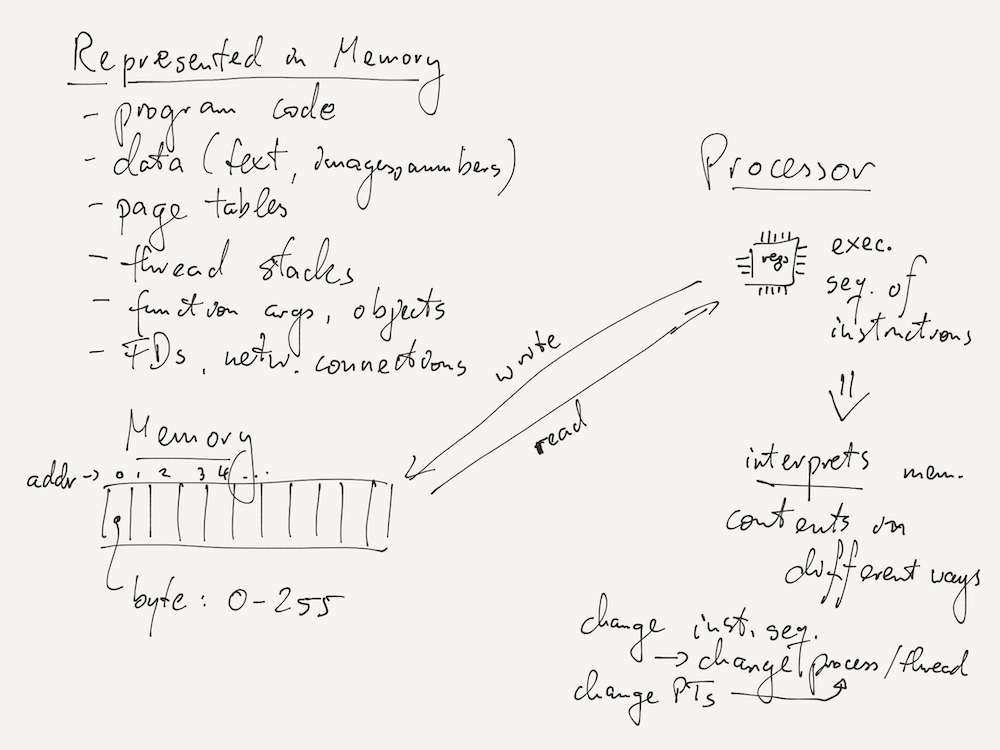 Represented in Memory
- program code
- data (text, images, numbers)
- page tables
- thread stacks
- function args, objects
- FDs, netw. connections
Memory
addr → 0 1 2 3 4 ...
byte: 0-255
write
read
Processor
regs
exec.
seq. of
instructions
interprets mem.
contents in
different ways
change inst. seq.
→ change process/thread
change PTs